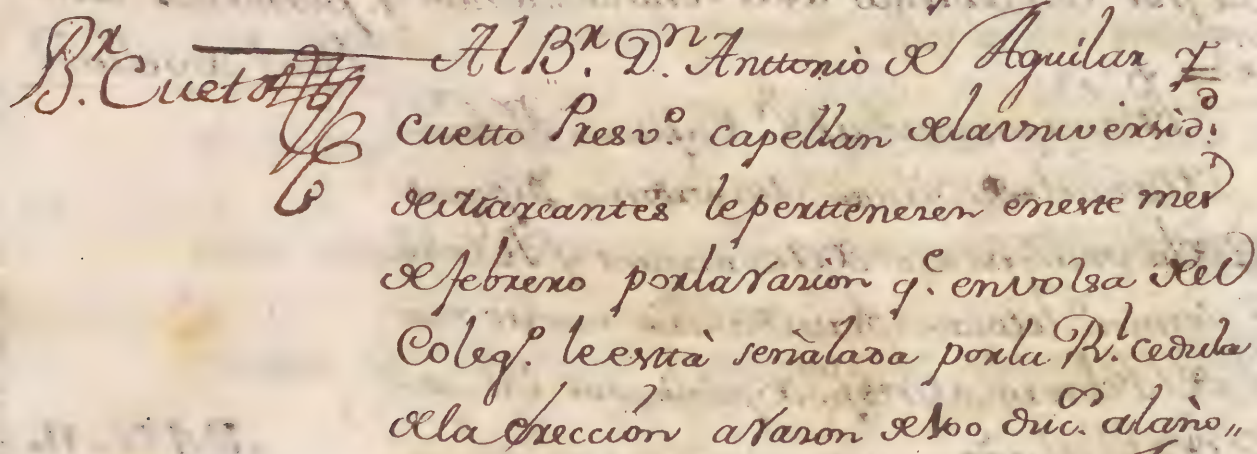 Br. Cueto
Al Br. Dn. Anttonio de Aguilar y
Cuetto Presvo. capellan dela vniversid.
de Mareantes le pertteneren en este mes
de febrero por la razion qe. en volsa del
Colego. le esttà señalada por la Rl. cedula
de la ereccion a razon de 100 duc.os al año,,